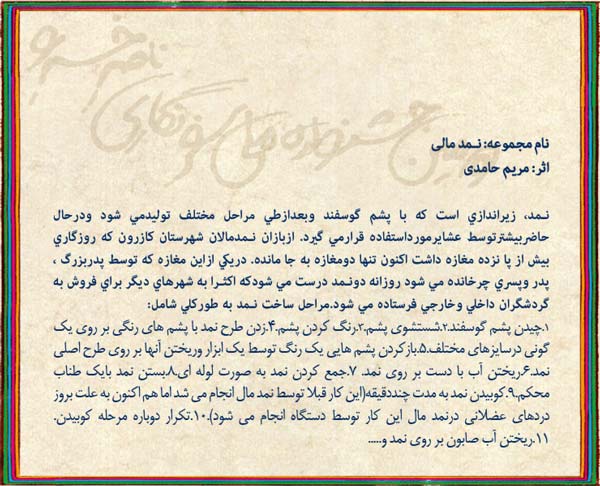 نام مجموعه: نـمد مالی
اثر: مریم حامدی
نـمد، زیراندازي است که با پشم گوسفند وبعدازطي مراحل مختلف تولیدمي شود ودرحال
حاضربیشترتوسط عشایرمورداستفاده قرارمي گیرد. ازبازان نـمدمالان شهرستان کازرون که روزگاري
بیش از پا نزده مغازه داشت اکنون تنها دومغازه به جا مانده. دریکي ازاین مغازه که توسط پدربزرگ ،
پدر وپسري چرخانده مي شود روزانه دونـمد درست مي شودکه اکثـرا به شهرهاي دیگر براي فروش به
گردشگران داخلي وخارجي فرستاده مي شود.مراحل ساخت نـمد به طورکلي شامل:
۱.چیدن پشم گوسفند.۲.شستشوی پشم.۳.رنگ کردن پشم.۴.زدن طرح نمد با پشم های رنگی بر روی یک
گونی درسایزهای مختلف.۵.بازکردن پشم هایی یک رنگ توسط یک ابزار وریختن آنها بر روی طرح اصلی
نمد.۶.ریختن آب با دست بر روی نمد. ۷.جمع کردن نمد به صورت لوله ای.۸.بستن نمد بایک طناب
محکم.۹.کوبیدن نمد به مدت چنددقیقه(این کار قبلا توسط نمد مال انجام می شد اما هم اکنون به علت بروز
دردهای عضلانی درنمد مال این کار توسط دستگاه انجام می شود).۱۰.تکرار دوباره مرحله کوبیدن.
۱۱.ریختن آب صابون بر روی نمد و.....